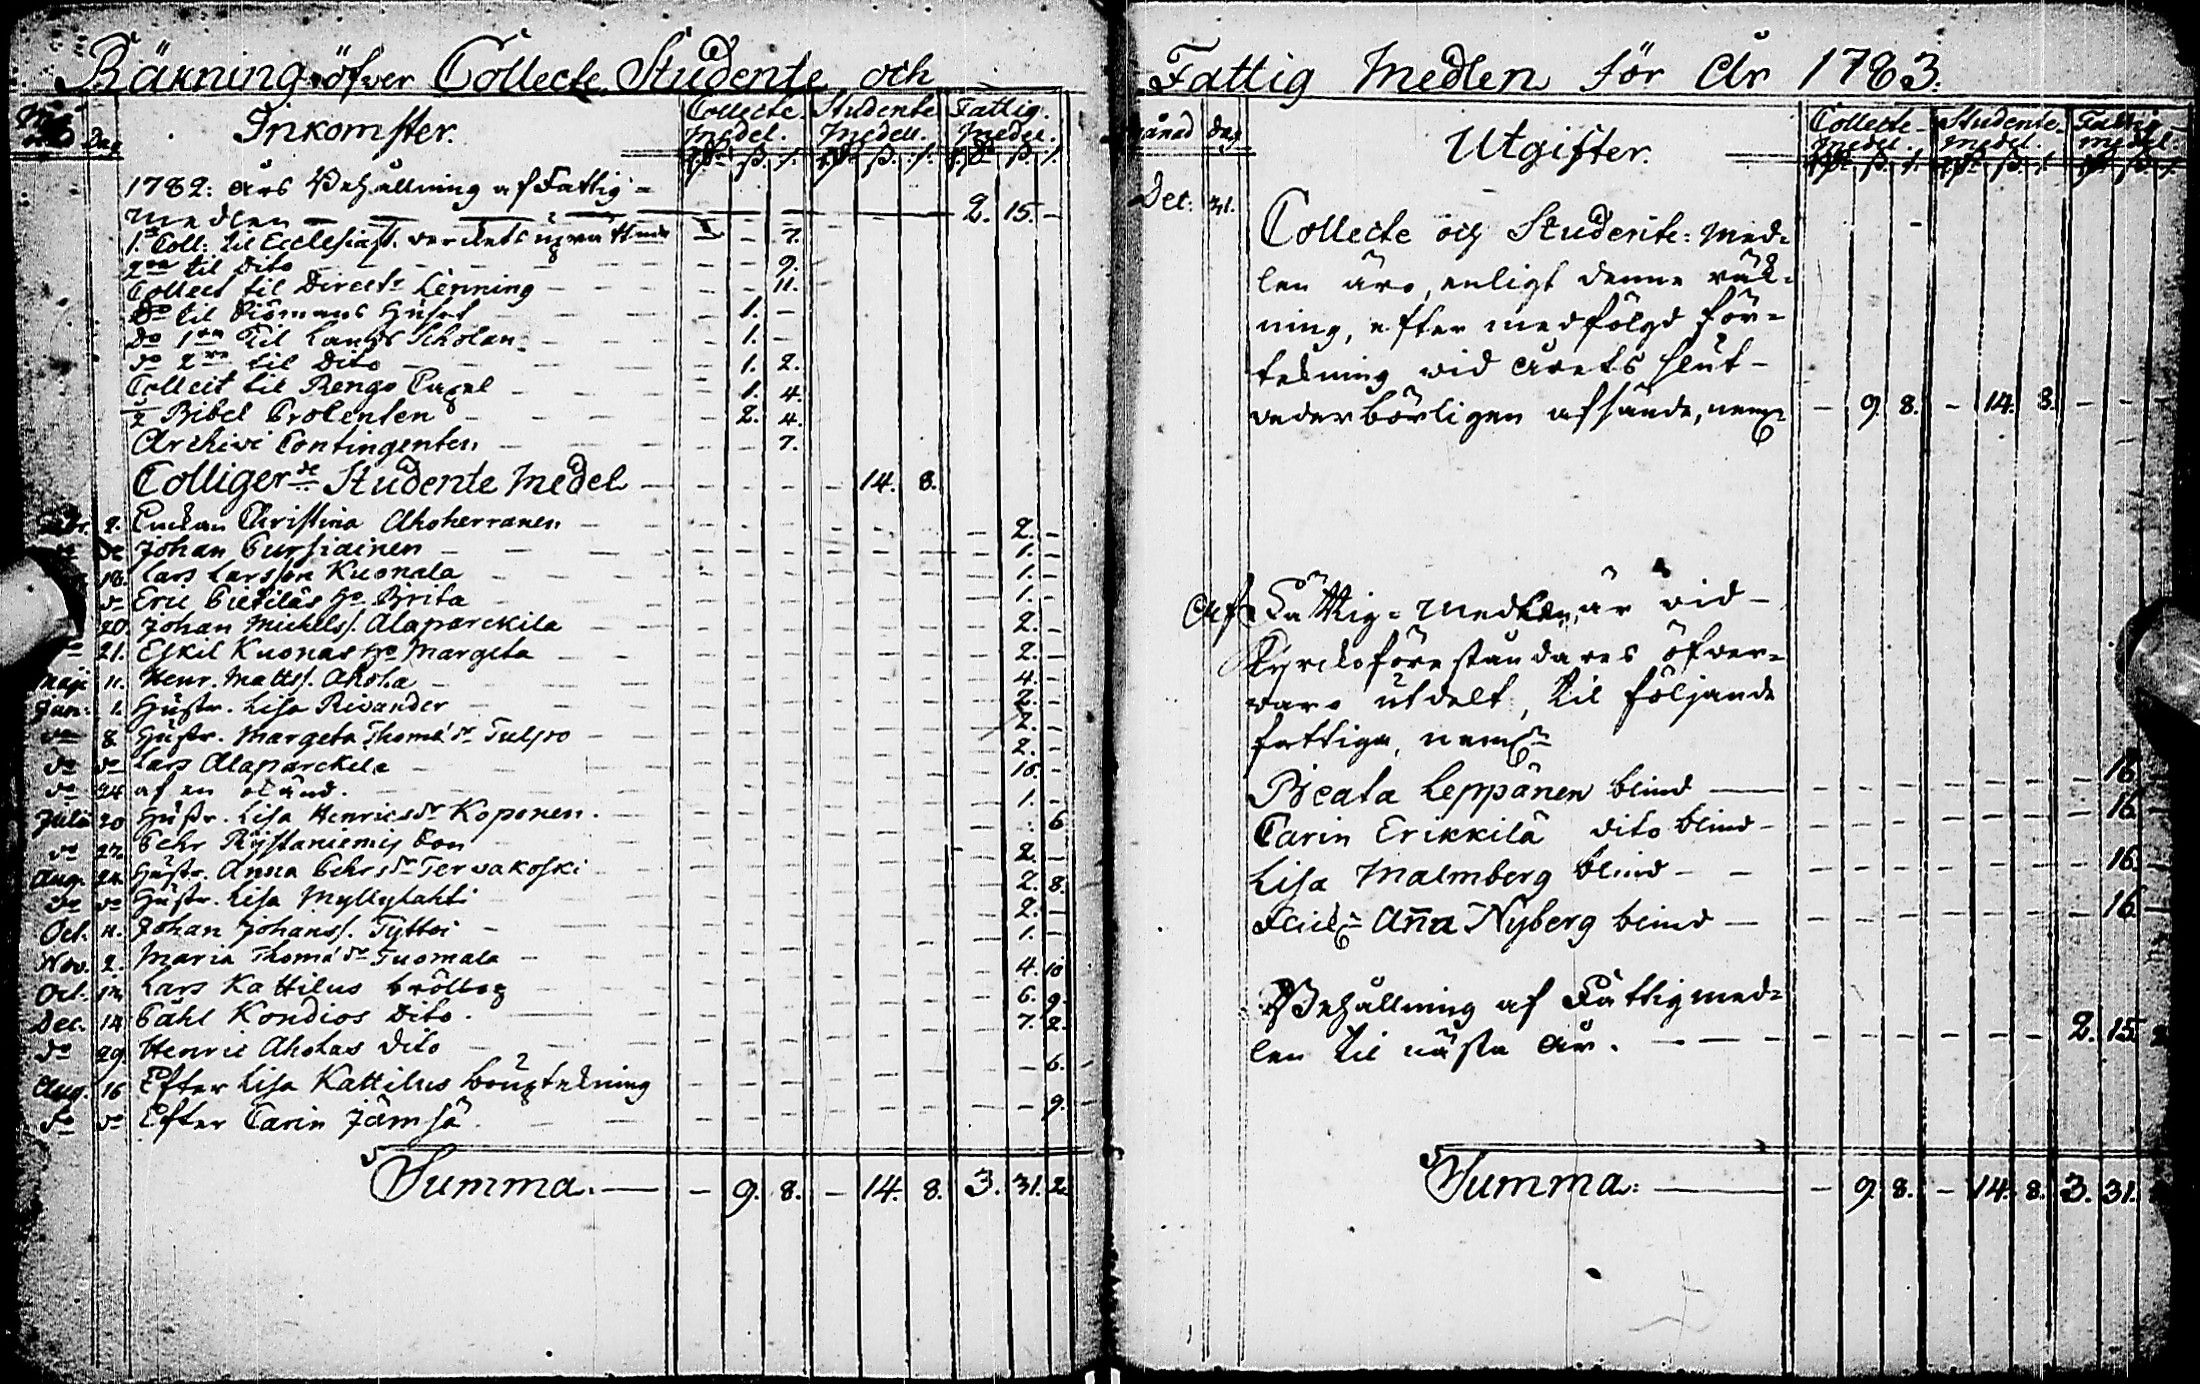 Räkning öfver Collecte Studente och
Månad Dag Inkomster. Collecte Medel. Studente Medell. Fattig. Medel.
Rdr ß. /. Rdr ß. /. Rdr ß. /.
1782: års Behållning af Fattig-
medlen 2. 15. -
1.sta Coll: til Ecclesiast. verkets 7.
2dra til dito 9.
Collect til Direct. Lenning 11.
Do til Siömans Huset 1. -
Do 1sta til Lands Scholan 1. -
do 2dra til dito 1. 2.
Collect til Rengo Capel 1. 4.
½ Bibel Protenten 2. 4.
Archivi Contingenten 7.
Colligerde Studente Medel 14. 8.
Febr. 2. Enckan Christina Ahoherranen 2. -
do do Johan Pursiainen 1. -
18. Lars Larsson Kuonala 1. -
do Eric Pietiläs ho Brita 1. -
20. Johan Michelss. Alaparckila 2. -
21. Eskil Kuonas ho Margeta 2. -
Maji 11. Henr. Mattss. Ahola 4. -
Jun: 1. Hustr. Lisa Rivander 2. -
do 8 Hustr. Margeta Thomædr Tulpo 2. -
do do Lars Alaparckila 2. -
do 24 af en okänd. 16. -
Julii 20 Hustr. Lisa Henricsdr Koponen. 1. -
do 27. Pehr Rystaniemis Son 6
Aug. 24. Hustr. Anna Pehrsdr Tervakoski 2. -
do do Hustr. Lisa Myllylahti 2. 8.
Oct. 11. Johan Johanss. Tyttoi 2. -
Nov. 2. Maria Thomædr Tuomala 1. -
Oct. 12. Lars Kattilus bröllop 4. 10
Dec. 14 Påhl Kondios dito. 6. 9.
do 29 Henric Aholas dito 7. 2.
Aug. 16 Efter Lisa Kattilus bouptekning 6. -
do do Efter Carin Jämsä 9. -
Summa. - 9. 8. - 14. 8. 3. 31. 2.
Fattig Medlen för År 1783.
Månad dag Utgifter. Collecte- Medel. Studente. Medel. Fattig- medel:
Rdr ß. /. Rdr ß. /. Rdr ß. /.
Dec: 31. Collecte och Studente: Med-
len äro, enligt denne räk-
ning, efter medfölgd för-
tekning vid årets slut-
vederbörligen afsände, neml. - 9. 8. - 14. 8. - - -
Af Fattig-Medlen, är vid-
Kyrckoföreståndares öfver-
varo utdelt, til följande
fattiga, neml.
Beata Leppänen blind 16. -
Carin Erikkilä dito blind- 16. -
Lisa Malmberg blind - 16. -
Anna Nyberg blind - 16. -
Behållning af Fattigmed-
len til nästa år. 2. 15. 2
Summa: - 9. 8. - 14. 8. 3. 31.